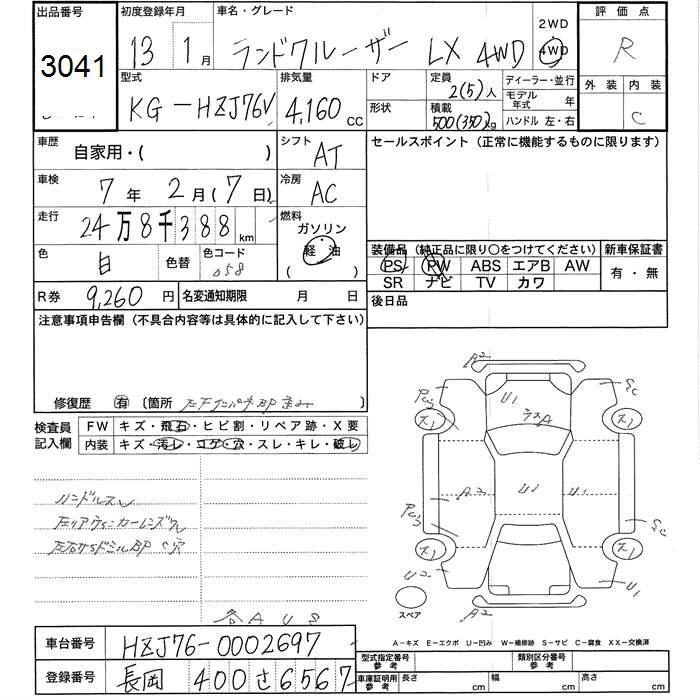 出品番号 初度登録年月 車名・グレード 2WD 評価点
3041 13 1月 ランドクルーザー LX 4WD 4WD R
型式 排気量 ドア 定員 ディーラー・並行 外装 内装
KG-HZJ76V 4,160cc 2(5)人 モデル年式 年
形状 積載 500(350)kg ハンドル 左・右 C
車歴 シフト セールスポイント (正常に機能するものに限ります)
自家用・( ) AT
車検 冷房
7年 2月(7日) AC
走行 燃料
24万8千388km ガソリン
色 色替 色コード 軽油
白 058 ( )
装備品 (純正品に限り○をつけてください) 新車保証書
PS PW ABS エアB AW 有・無
SR ナビ TV カワ
R券 9,260円 名変通知期限 月 日 後日品
注意事項申告欄 (不具合内容等は具体的に記入して下さい)
修復歴 有 〔箇所 〕
検査員記入欄 FW キズ・飛石・ヒビ割・リペア跡・X要
内装 キズ・汚レ・コゲ・穴・スレ・キレ・破レ
ハンドルスレ
A2
U1
A2 U1 U1
U2 U1
A2
スペア
各AUS
A-キズ E-エクボ U-凹み W-補修跡 S-サビ C-腐食 XX-交換済
車台番号 HZJ76-0002697
型式指定番号 参考 類別区分番号 参考
登録番号 長岡 400 さ 6567
車庫証明用 参考 長さ cm 幅 cm 高さ cm